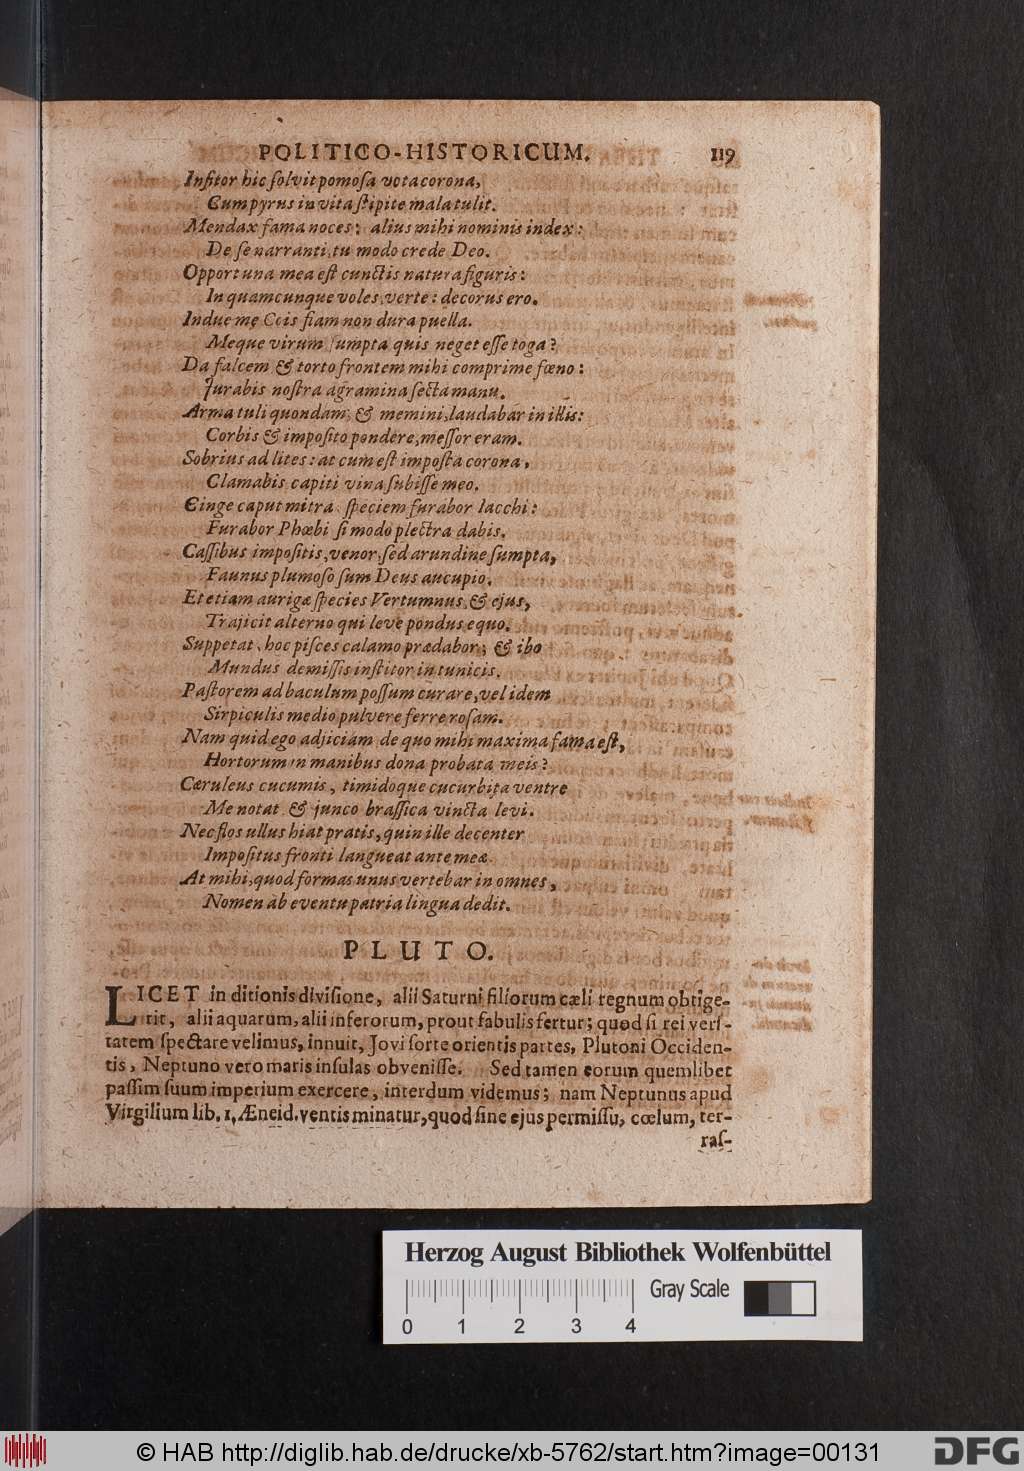 POLITICO-HISTORICUM. 119
Inſitor hic ſolvit pomoſa vota corona,
Cum pyrus invita ſtipite mala tulit.
Mendax fama noces: alius mihi nominis index:
De ſe narranti, tu modo crede Deo.
Opportuna mea eſt cunctis natura figuris:
In quamcunque voles, verte: decorus ero.
Indue me Cois fiam non dura puella.
Meque virum ſumpta quis neget eſſe toga?
Da falcem & torto frontem mihi comprime fœno:
Jurabis noſtra agramina ſecta manu.
Arma tuli quondam, & memini, laudabar in illis:
Corbis & impoſito pondere, meſſor eram.
Sobrius ad lites: at cum eſt impoſta corona,
Clamabis capiti vina ſubiſſe meo.
Cinge caput mitra, ſpeciem furabor Iacchi:
Furabor Phœbi ſi modo plectra dabis.
Caſſibus impoſitis, venor, ſed arundine ſumpta,
Faunus plumoſo ſum Deus aucupio.
Et etiam aurigæ ſpecies Vertumnus, & ejus,
Trajicit alterno qui leve pondus equo.
Suppetat, hoc piſces calamo prædabor; & ibo
Mundus demiſſis inſtitor in tunicis.
Paſtorem ad baculum poſſum curare, vel idem
Sirpiculis medio pulvere ferre roſam.
Nam quid ego adjiciam, de quo mihi maxima fama eſt,
Hortorum in manibus dona probata meis?
Cæruleus cucumis, timidoque cucurbita ventre
Me notat & junco braſſica vincta levi.
Nec flos ullus hiat pratis, quin ille decenter
Impoſitus fronti langueat ante meæ.
At mihi, quod formas unus vertebar in omnes,
Nomen ab eventu patria lingua dedit.
PLUTO.
LICET in ditionis diviſione, alii Saturni filiorum cæli regnum obtige-
rit, alii aquarum, alii inferorum, prout fabulis fertur; quod ſi rei veri-
tatem ſpectare velimus, innuit, Jovi ſorte orientis partes, Plutoni Occiden-
tis, Neptuno vero maris inſulas obveniſſe. Sed tamen eorum quemlibet
paſſim ſuum imperium exercere, interdum videmus; nam Neptunus apud
Virgilium lib. 1. Æneid. ventis minatur, quod ſine ejus permiſſu, cœlum, ter-
raſ-
Herzog August Bibliothek Wolfenbüttel
Gray Scale
0 1 2 3 4
© HAB http://diglib.hab.de/drucke/xb-5762/start.htm?image=00131
DFG